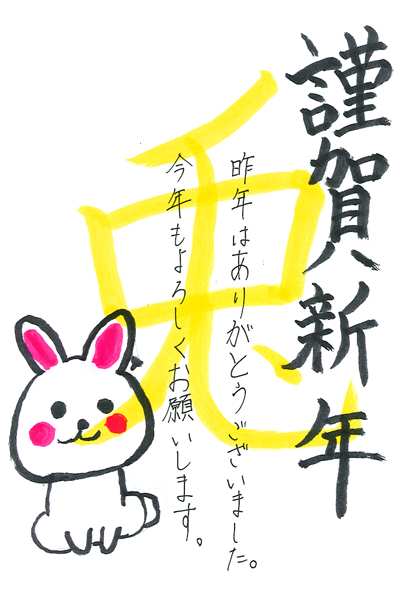 謹賀新年
昨年はありがとうございました。
今年もよろしくお願いします。
兎